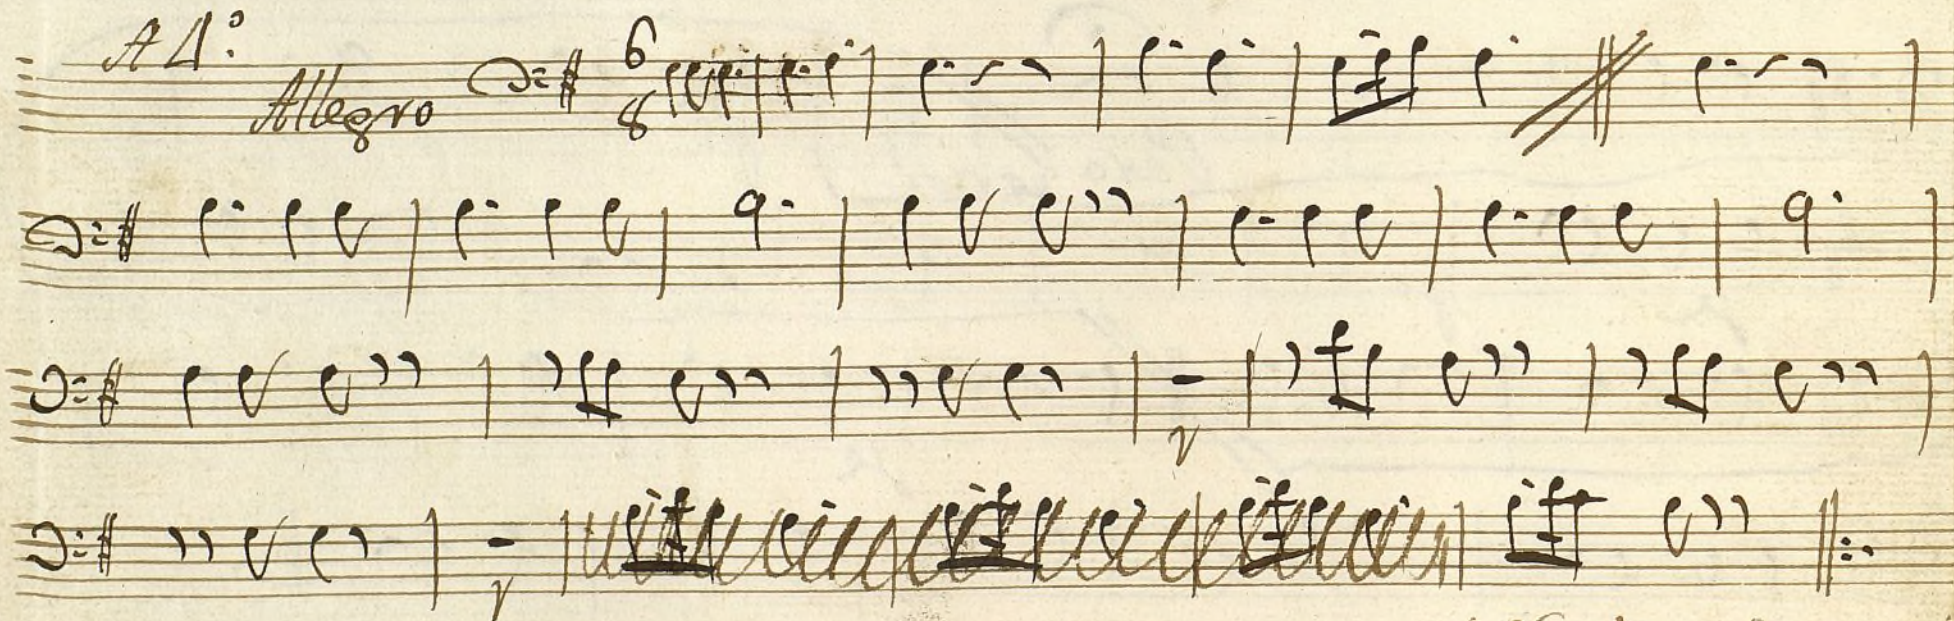 A 4º.
Allegro
6
8